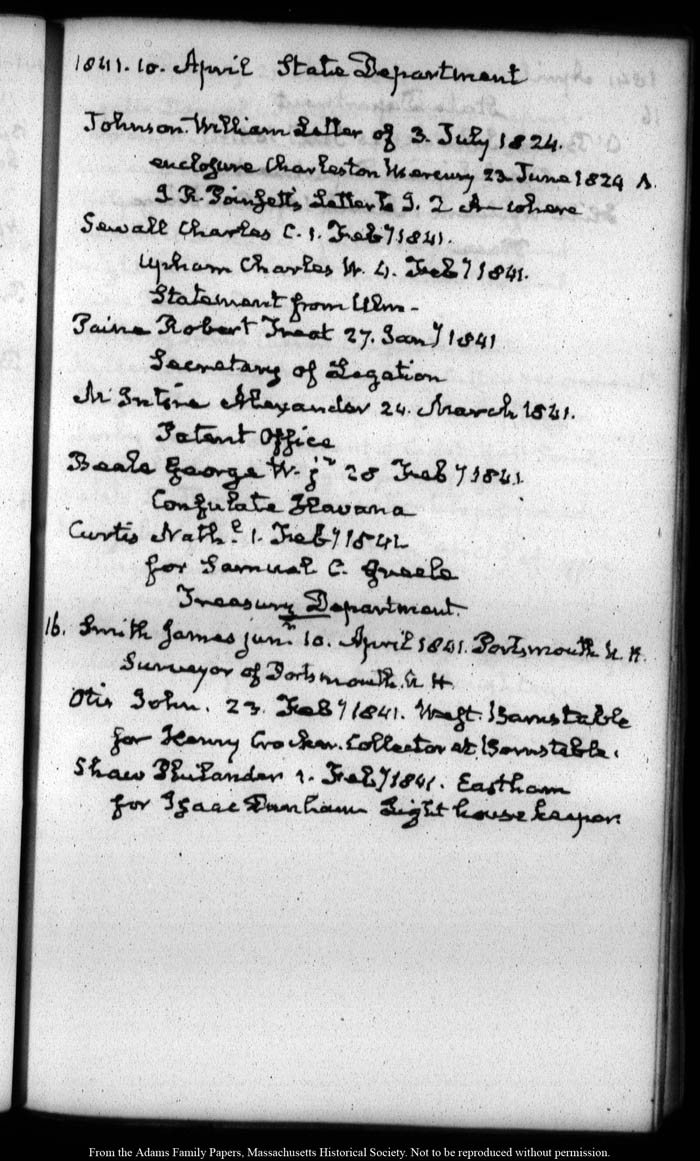 1841. 10. April State Department
Johnson. William Letter of 3. July 1824.
enclosure Charleston Mercury 23 June 1824
J R. Poinsett's Letter to J. Q A— where
Sewall Charles C. 1. Feby 1841.
Upham Charles W. 4. Feby 1841.
Statement from Ulm—
Paine Robert Treat 27. Jany 1841
Secretary of Legation
McIntire Alexander 24. March 1841.
Patent Office
Beale George W. jr 28 Feby 1841
Consulate Havana
Curtis Nathl 1. Feby 1841
for Samuel C.
Treasury Department.
16. Smith James junr 10. April 1841. Portsmouth N. H.
Surveyor of Portsmouth. N H.
Otis John. 23. Feby 1841. West. Barnstable
for Henry Crocker. Collector at Barnstable.
Shaw Philander 1. Feby 1841. Eastham
for Isaac Dunham Light house keeper.
From the Adams Family Papers, Massachusetts Historical Society. Not to be reproduced without permission.